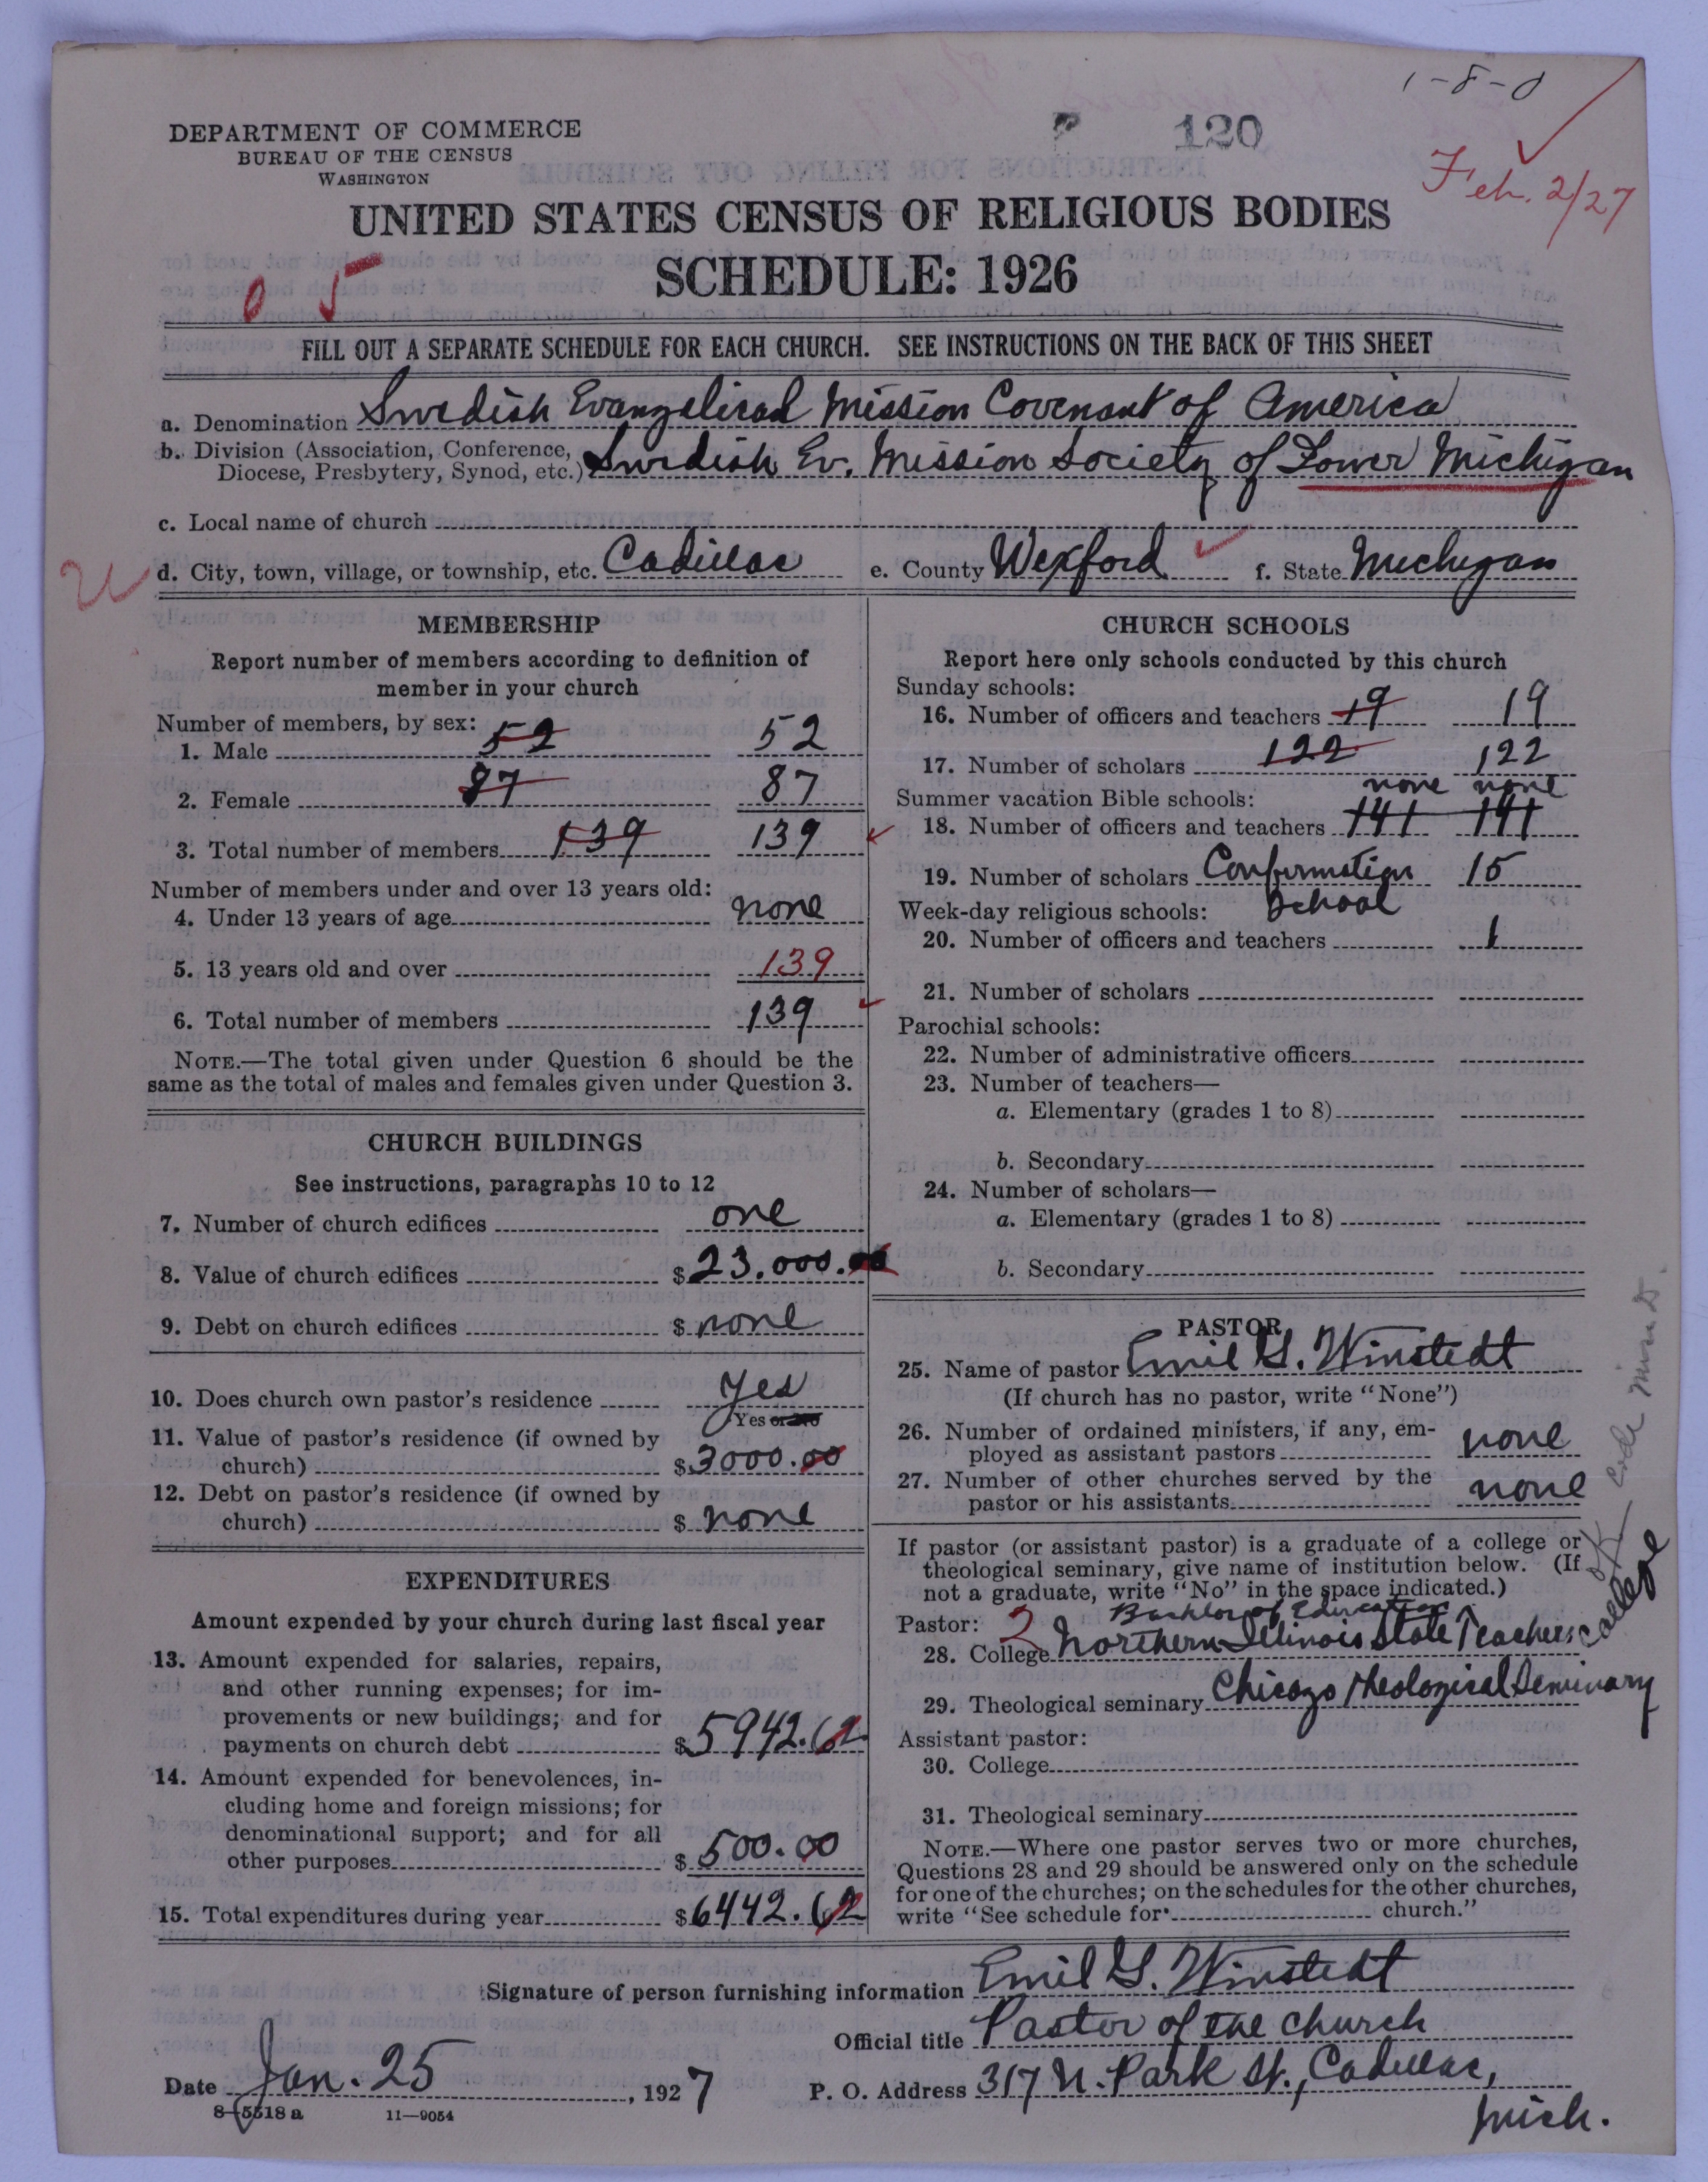 1-8-0
DEPARTMENT OF COMMERCE
BUREAU OF THE CENSUS
WASHINGTON
120
Feb. 2/27
UNITED STATES CENSUS OF RELIGIOUS BODIES
SCHEDULE: 1926
0 5
FILL OUT A SEPARATE SCHEDULE FOR EACH CHURCH. SEE INSTRUCTIONS ON THE BACK OF THIS SHEET
a. Denomination Swedish Evangelical Mission Covenant of America
b. Division (Association, Conference,
Diocese, Presbytery, Synod, etc.) Swedish Ev. Mission Society of Lower Michigan
c. Local name of church
d. City, town, village, or township, etc. Cadillac e. County Wexford f. State Michigan
MEMBERSHIP
Report number of members according to definition of
member in your church
Number of members, by sex:
1. Male 52 52
2. Female 87 87
3. Total number of members 139 139
Number of members under and over 13 years old:
4. Under 13 years of age none
5. 13 years old and over 139
6. Total number of members 139
NOTE.—The total given under Question 6 should be the
same as the total of males and females given under Question 3.
CHURCH BUILDINGS
See instructions, paragraphs 10 to 12
7. Number of church edifices one
8. Value of church edifices $23.000.00
9. Debt on church edifices $ none
10. Does church own pastor's residence Yes
Yes or No
11. Value of pastor's residence (if owned by
church) $3000.00
12. Debt on pastor's residence (if owned by
church) $ none
EXPENDITURES
Amount expended by your church during last fiscal year
13. Amount expended for salaries, repairs,
and other running expenses; for im-
provements or new buildings; and for
payments on church debt $5942.62
14. Amount expended for benevolences, in-
cluding home and foreign missions; for
denominational support; and for all
other purposes $500.00
15. Total expenditures during year $6442.62
CHURCH SCHOOLS
Report here only schools conducted by this church
Sunday schools:
16. Number of officers and teachers 19 19
17. Number of scholars 122 122
none none
Summer vacation Bible schools:
18. Number of officers and teachers 141 141
19. Number of scholars Confirmation 15
Week-day religious schools: School
20. Number of officers and teachers 1
21. Number of scholars
Parochial schools:
22. Number of administrative officers
23. Number of teachers—
a. Elementary (grades 1 to 8)
b. Secondary
24. Number of scholars—
a. Elementary (grades 1 to 8)
b. Secondary
PASTOR
25. Name of pastor Emil G. Winstedt
(If church has no pastor, write "None")
26. Number of ordained ministers, if any, em-
ployed as assistant pastors none
27. Number of other churches served by the
pastor or his assistants none
If pastor (or assistant pastor) is a graduate of a college or
theological seminary, give name of institution below. (If
not a graduate, write "No" in the space indicated.)
Pastor: 2 Bachlor of Education
28. College Northern Illinois State Teachers College
29. Theological seminary Chicago Theological Seminary
Assistant pastor:
30. College
31. Theological seminary
NOTE.—Where one pastor serves two or more churches,
Questions 28 and 29 should be answered only on the schedule
for one of the churches; on the schedules for the other churches,
write "See schedule for church."
OK
Signature of person furnishing information Emil G. Winstedt
Official title Pastor of the church
Date Jan. 25, 1927 P. O. Address 317 N. Park St., Cadillac,
Mich.
8-5518 a 11—9054